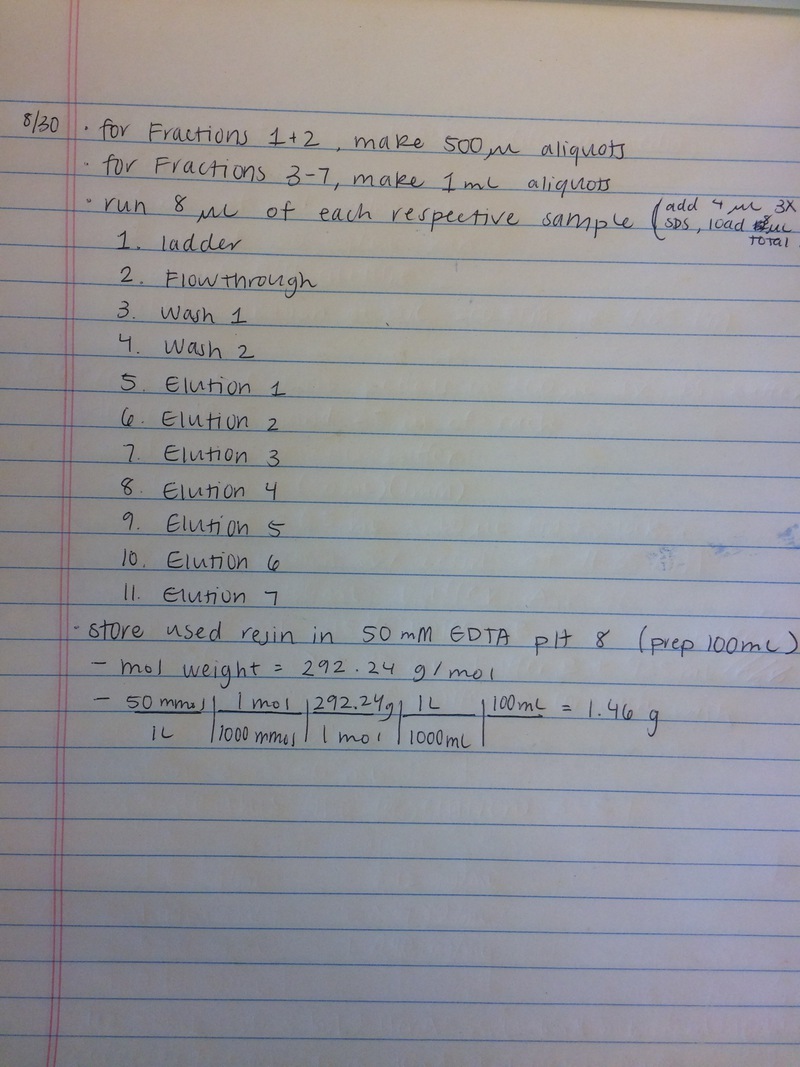 8/30 · for Fractions 1+2, make 500 μL aliquots
· for Fractions 3-7, make 1 mL aliquots
· run 8 μL of each respective sample (add 4 μL 3X
SDS, load 8 μL
total
1. ladder
2. Flowthrough
3. Wash 1
4. Wash 2
5. Elution 1
6. Elution 2
7. Elution 3
8. Elution 4
9. Elution 5
10. Elution 6
11. Elution 7
· store used resin in 50 mM EDTA pH 8 (prep 100mL)
- mol weight = 292.24 g/mol
- 50 mmol | 1 mol | 292.24g | 1L | 100mL = 1.46 g
1L | 1000 mmol | 1 mol | 1000mL |